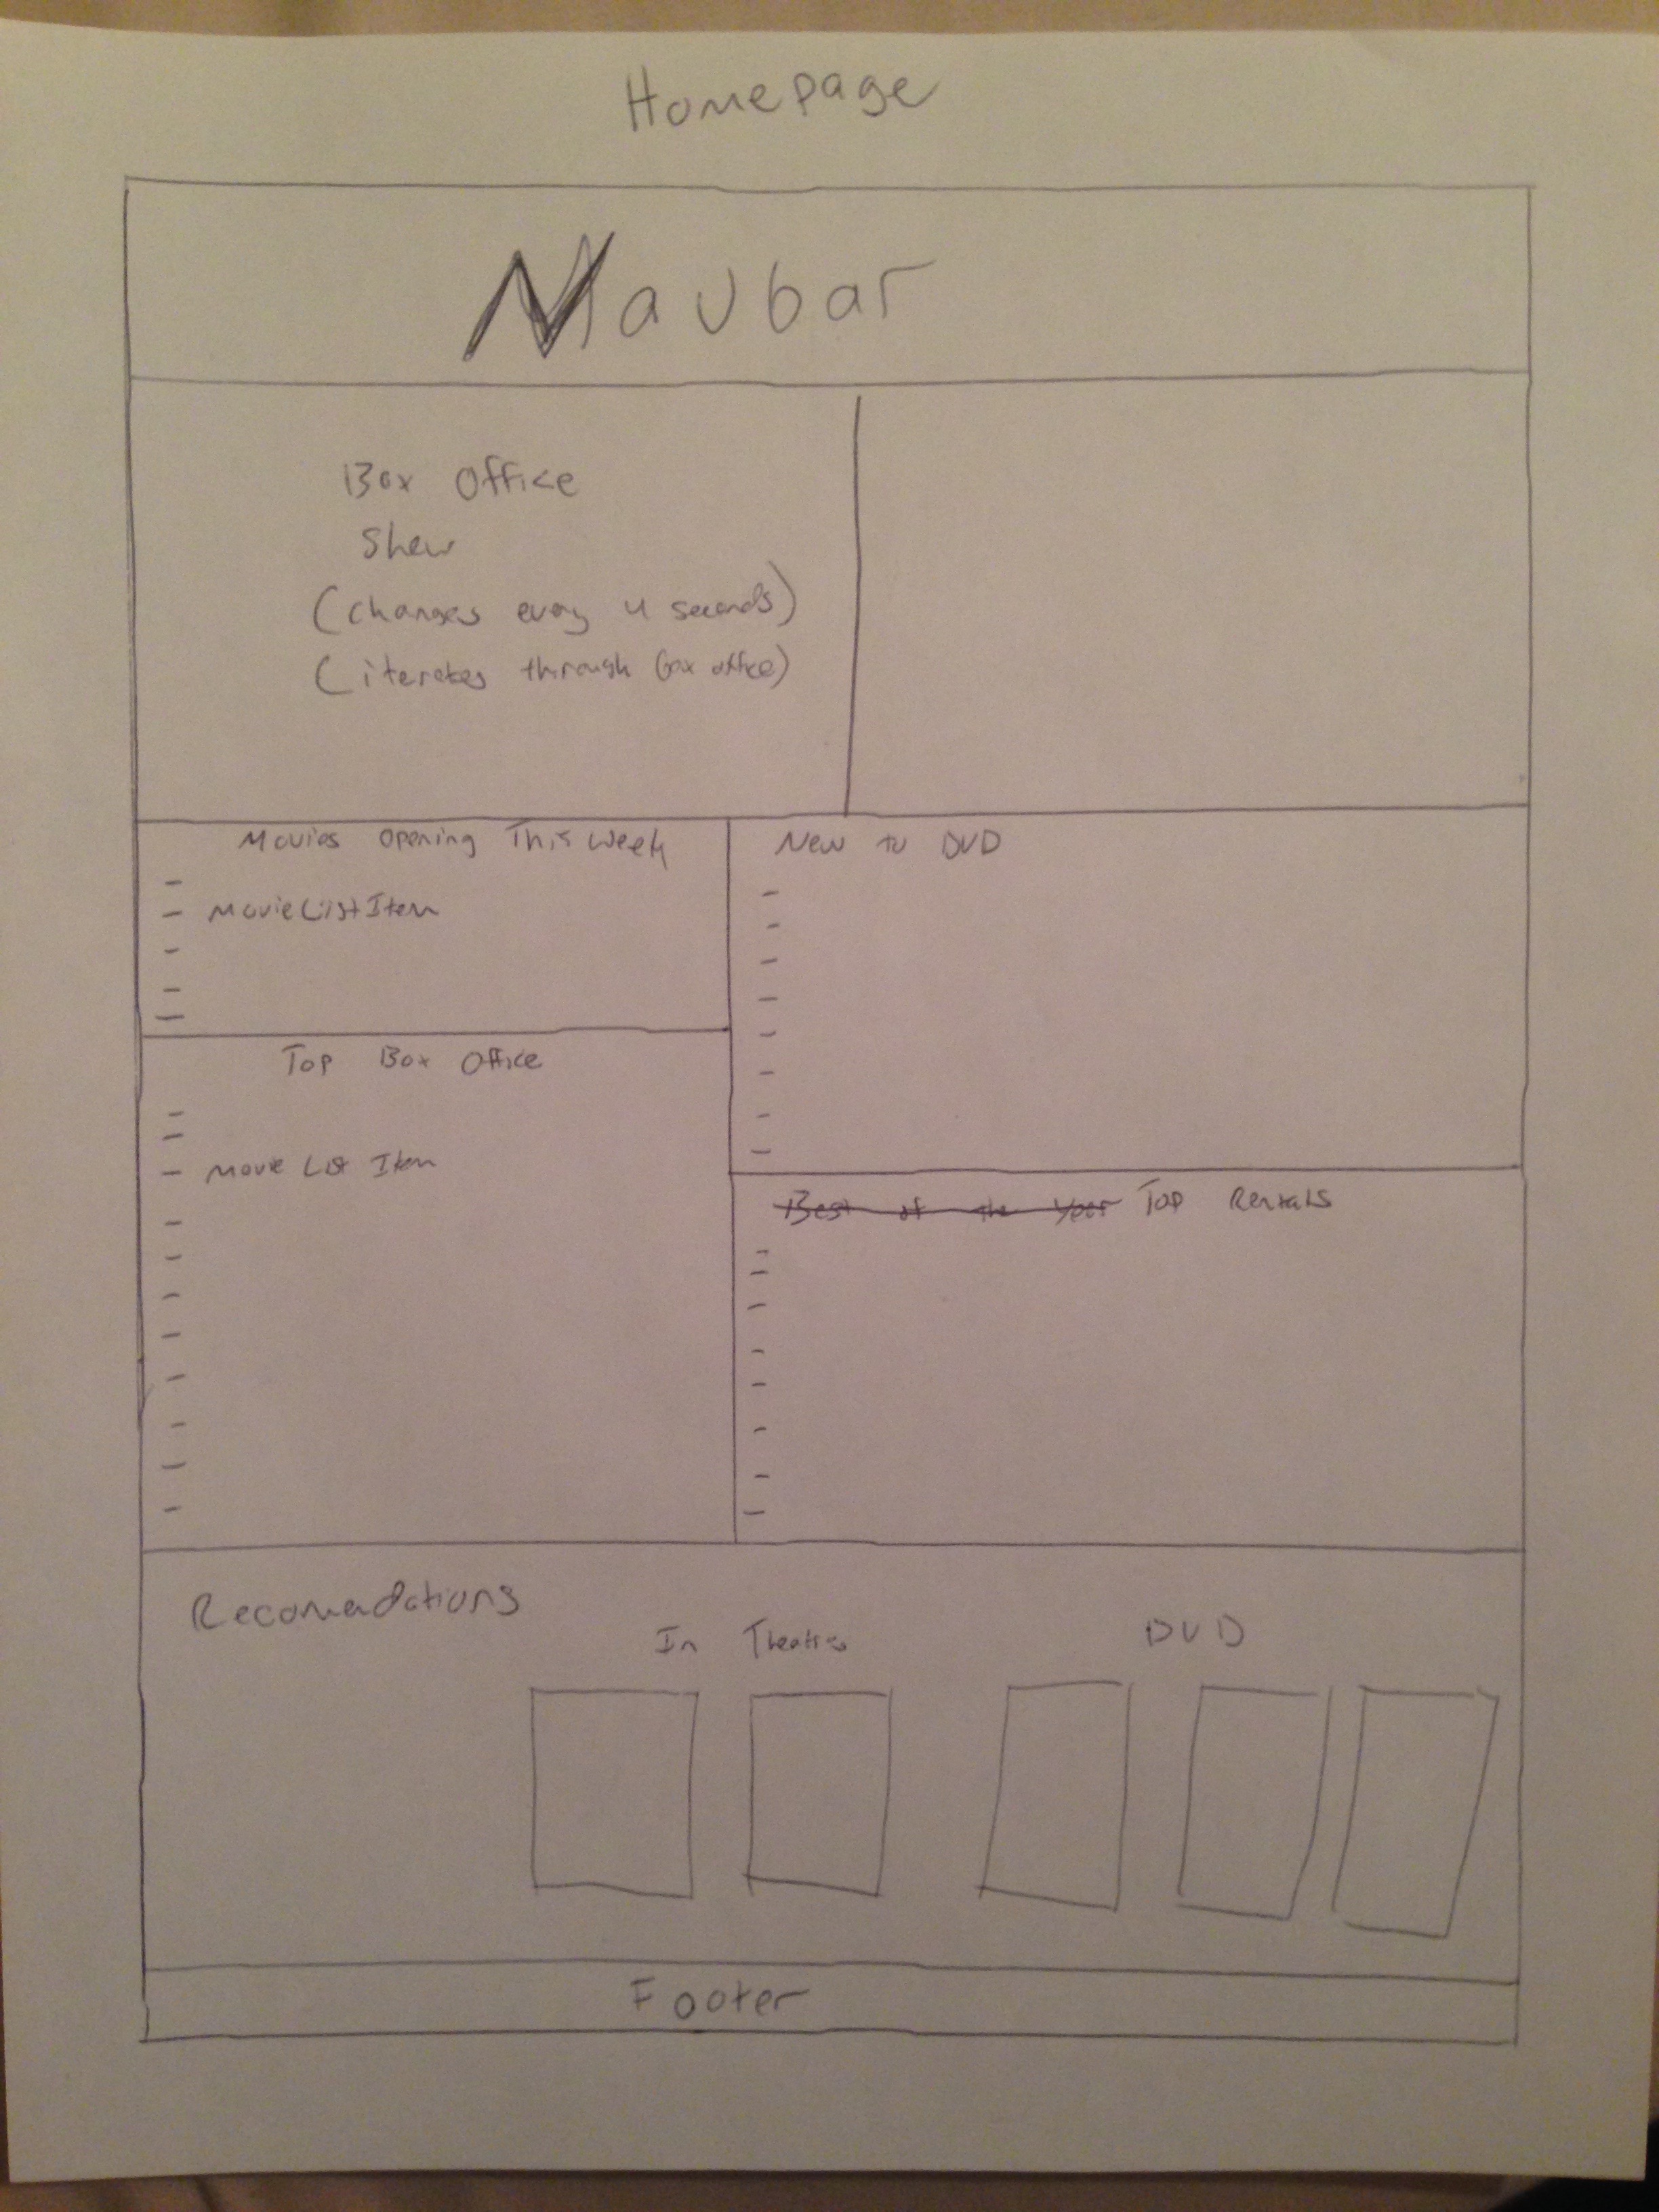 Homepage
Navbar
Box Office
Show
(changes every 4 seconds)
(iterates through box office)
Movies Opening This Week
MovieListItem
Top Box Office
Movie List Item
New to DVD
Best of the Year Top Rentals
Recomendations
In Theatres
DVD
Footer